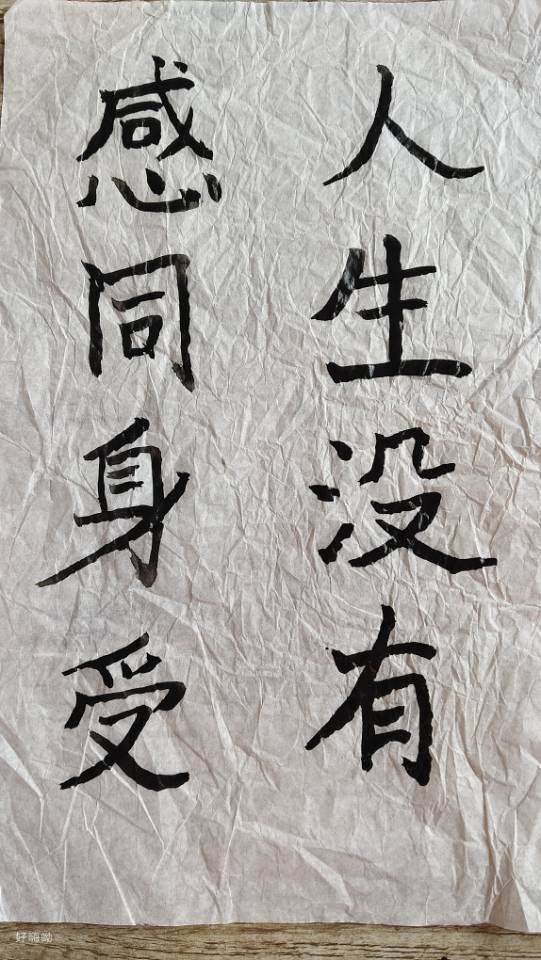 人生没有
感同身受
好嗨呦